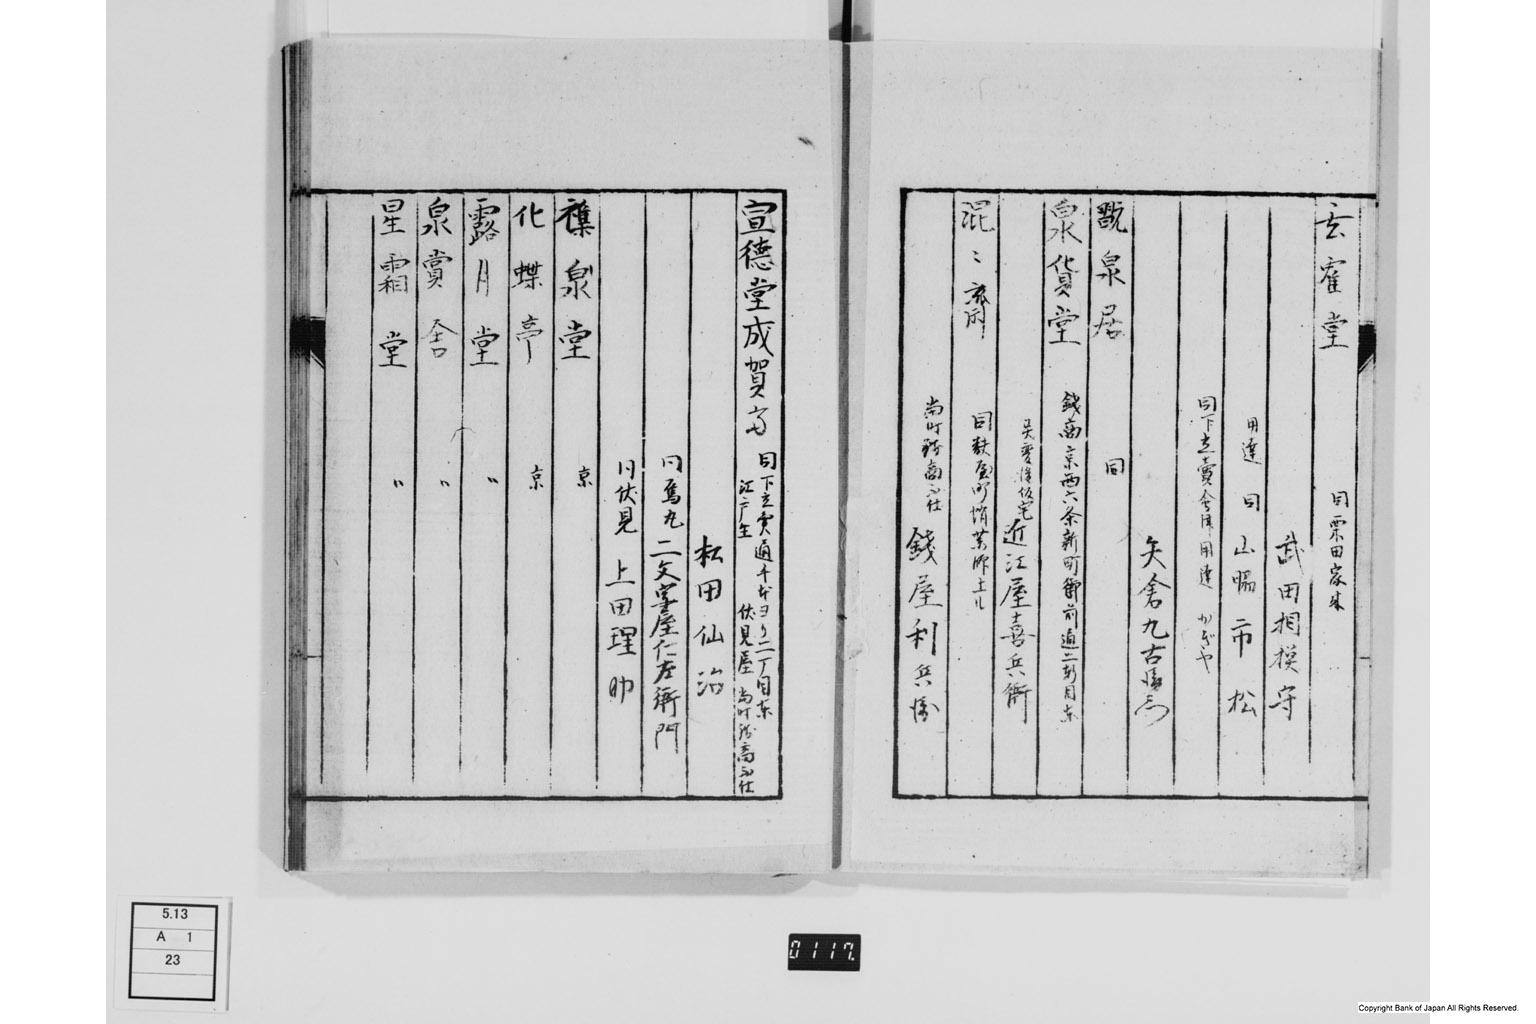 玄寉堂
同 栗田家来
武田相模守
用達 同 山幅市松
同下立賣会津用達 かぎや
矢倉九右衛門
甑泉居 同
泉貨堂 錢商京西六条新町御前通二丁目東
近江屋喜兵衛
混〻齋 同麩屋町蛸薬師上ル
錢屋利兵衛
宣德堂成賀
同下立賣通千本ヨリ二丁目東
江戸生 伏見屋
松田仙治
同烏丸 二文字屋仁左衛門
同伏見 上田理助
襍泉堂 京
化蝶亭 京
露月堂 〃
泉賞舎 〃
星霜堂 〃
5.13
A 1
23
0117.
Copyright Bank of Japan All Rights Reserved.